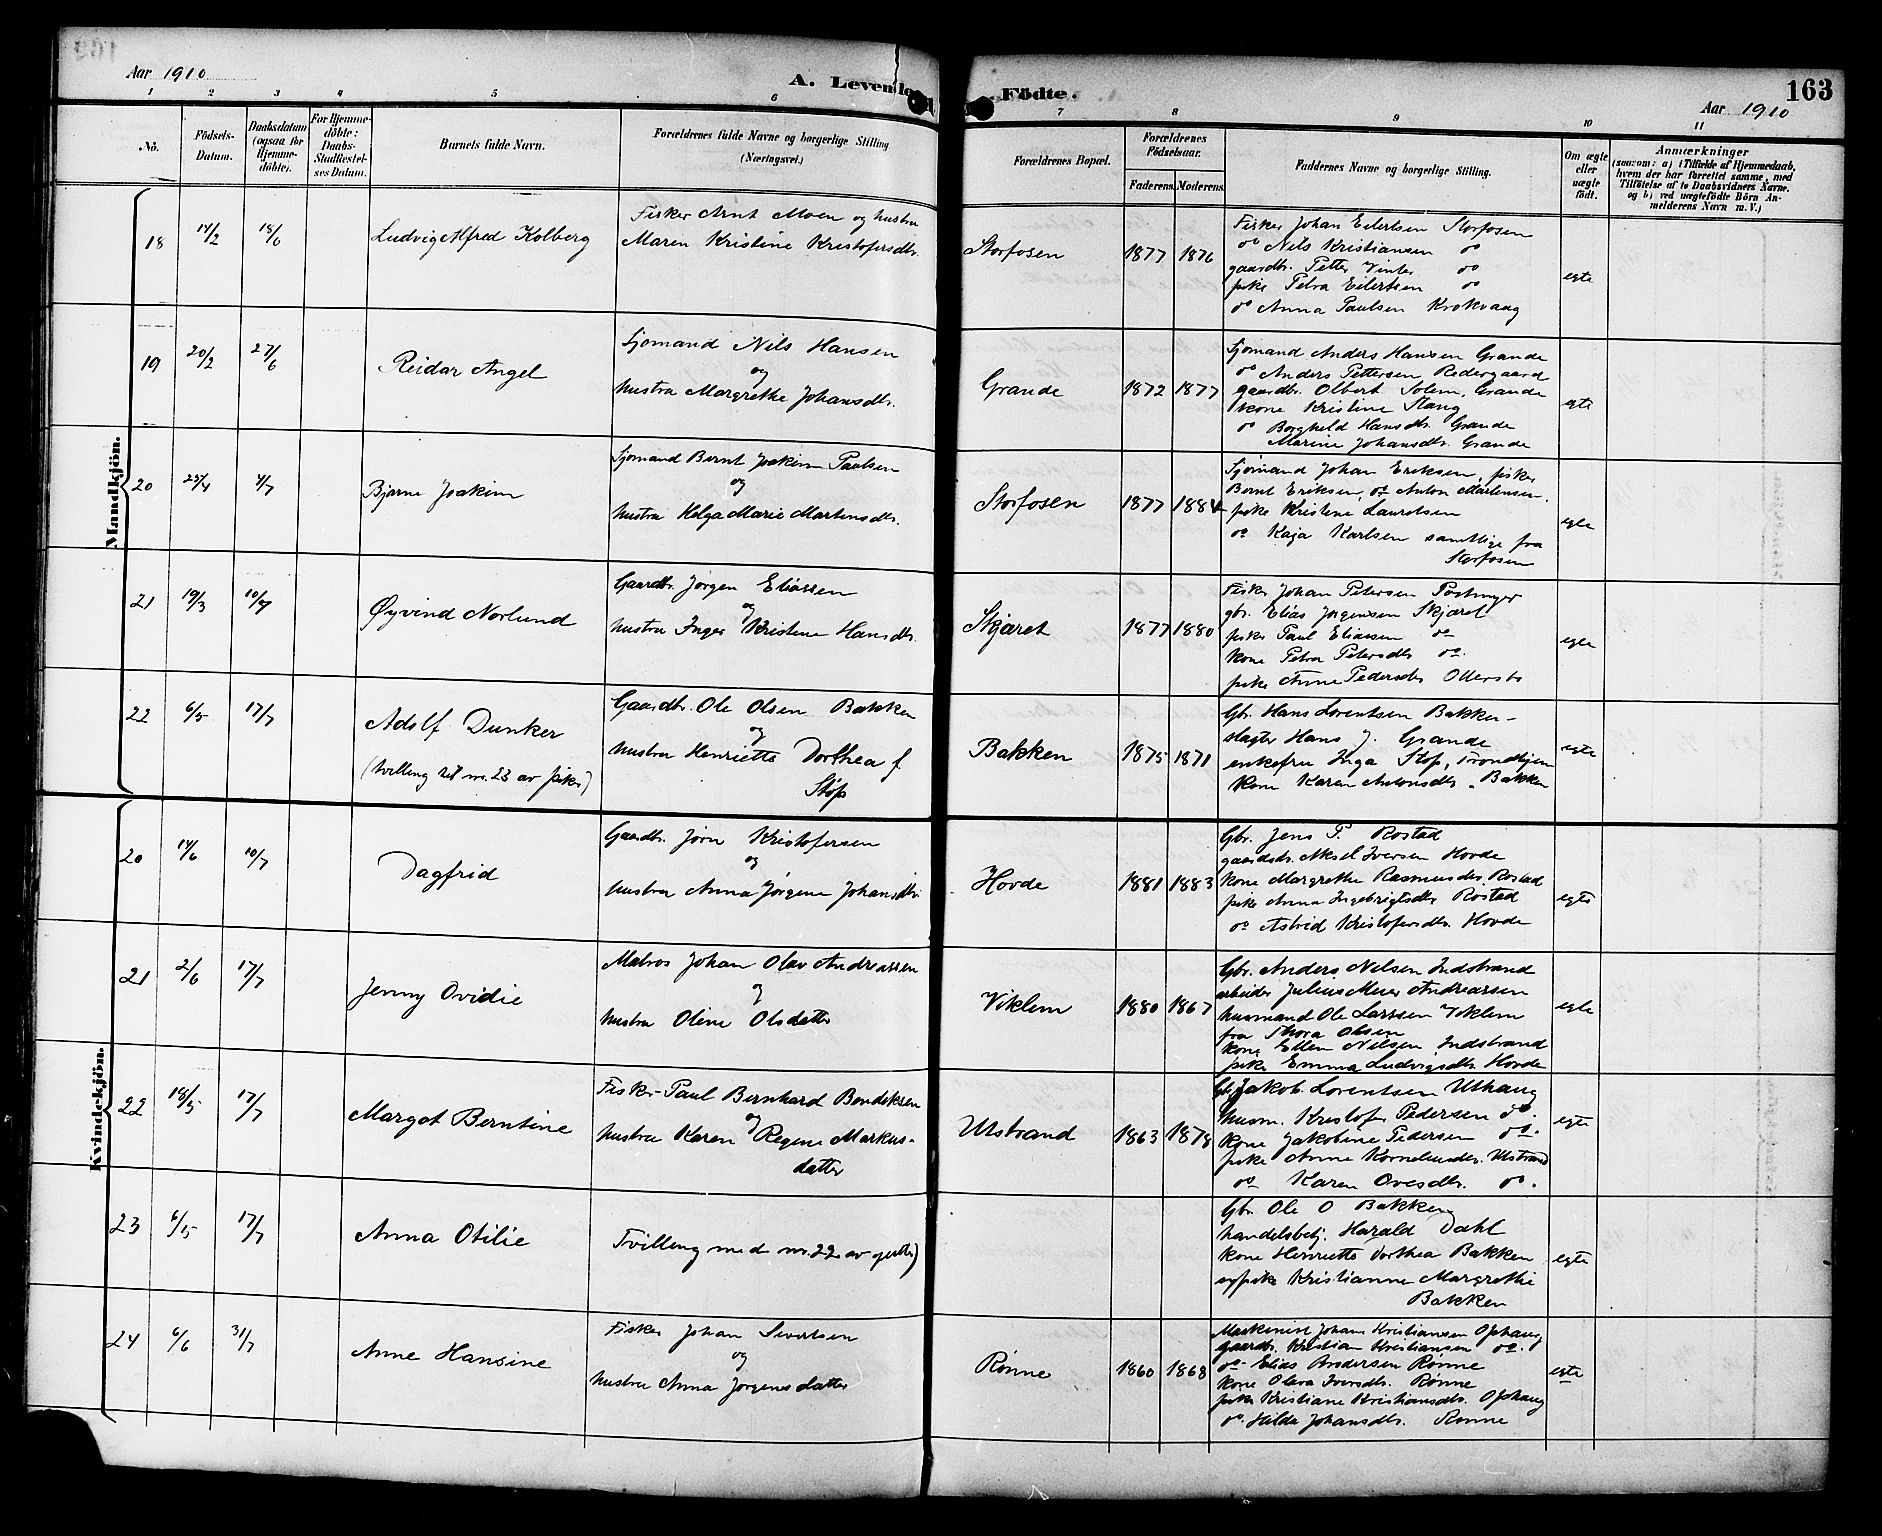 Aar 1910
A. Levende
Födte.
163
Aar 1910
1 2 3 4 5 6 7 8 9 10 11
No.
Födsels-
Datum.
Daabsdatum
(ogsaa for
Hjemme-
döbte).
For Hjemme-
döbte:
Daabs-
Stadfæstel-
ses Datum.
Barnets fulde Navn.
Forældrenes fulde Navne og borgerlige Stilling
(Næringsvei.)
Forældrenes Bopæl.
Forældrenes
Födselsaar.
Faderens. Moderens.
Faddernes Navne og borgerlige Stilling.
Om ægte
eller
uægte
födt.
Anmærkninger
(saasom: a) i Tilfælde af Hjemmedaab,
hvem der har forrettet samme, med
Tilföielse af to Daabsvidners Navne,
og b) ved uægtefödte Börn An-
melderens Navn m. V.)
Mandkjön.
18 14/2 18/6 Ludvig Alfred Kolberg
Fisker Arnt Moen og hustru
Maren Kristine Kristofersdtr.
Storfosen 1877 1876
Fisker Johan Eilertsen Storfosen
do Nils Kristiansen do
gaardbr. Petter Vinter do
pike Petra Eilertsen do
do Anna Paulsen Krokvaag
egte
19 20/2 27/6 Reidar Angel
Sjømand Nils Hansen
og
hustru Margrethe Johansdtr.
Grande 1872 1877
Sjømand Anders Hansen Grande
do Anders Pettersen Redergaard
gaardbr. Olbert Solem, Grande
kone Kristine Stang
do Borghild Hansdtr. Grande
Marine Johansdtr. Grande
egte
20 24/4 4/7 Bjarne Joakim
Sjømand Bernt Joakim Paulsen
og
hustru Helga Marie Martensdtr.
Storfosen 1877 1884
Sjømand Johan Eriksen, fisker
Bernt Eriksen, do Anton Martensen.
pike Kristine Lauretsen
do Kaja Karlsen samtlige fra
Storfosen
egte
21 19/3 10/7 Øyvind Norlund
Gaardbr. Jørgen Eliassen
og
hustru Inger Kristine Hansdtr.
Skjæret 1877 1880
Fisker Johan Petersen
gbr. Elias Jørgensen Skjæret
fisker Paul Eliassen do
kone Petra Petersdtr do.
pike Anne Pedersdtr Ottersbo
egte
22 6/5 17/7 Adolf Dunker
(tvilling til nr. 23 av piker)
Gaardbr. Ole Olsen Bakken
og
hustru Henriette Dorthea f.
Støp
Bakken 1875 1871
Gbr. Hans Lorentsen Bakken
slagter Hans J. Grande
enkefru Inga Støp, Trondhjem
Kone Karen Antonsdtr. Bakken
egte
Kvindekjön.
20 14/6 10/7 Dagfrid
Gaardbr. Jørn Kristofersen
og
hustru Anna Jørgine Johansdtr.
Hovde 1881 1883
Gbr. Jens P. Rostad
gaardsbr. Aksel Iversen Hovde
kone Margrethe Rasmusdtr Rostad
pike Anna Ingebrigtsdtr Rostad
do Astrid Kristofersdtr. Hovde
egte
21 2/6 17/7 Jenny Ovidie
Matros Johan Olav Andreassen
og
hustru Oline Olsdatter
Viklem 1880 1867
Gbr. Anders Nilsen Indstrand
arbeider Julius Meier Andreassen
husmand Ole Larssen Viklem
fru Thora Olsen
kone Ellen Nilsen Indstrand
pike Emma Ludvigsdtr. Hovde
egte
22 18/5 17/7 Margot Berntine
Fisker Paul Bernhard Bendiksen
og
hustru Karen Regine Markus-
datter
Utstrand 1863 1878
Gbr Jakob Lorentsen Uthaug
husm. Kristofer Pedersen do.
kone Jakobine Pedersen do.
pike Anne Korneliusdtr. Utstrand
do Karen Ovesdtr. do.
egte
23 6/5 17/7 Anna Otilie
Tvilling med nr. 22 av gutter)
Gbr. Ole O Bakken
handelsbetj. Harald Dahl
kone Henriette Dorthea Bakken
sypike Kristianne Margrethe
Bakken
egte
24 6/6 31/7 Anne Hansine
Fisker Johan Sivertsen
og
hustru Anna Jørgensdatter
Rønne 1860 1868
Maskinist Johan Kristiansen Ophaug
Gaardbr. Kristian Kristiansen do.
do Elias Andersen Rønne
kone Olava Iversdtr. Rønne
pike Kristiane Kristiansdtr. Ophaug
do. Hilda Johansdtr. Rønne
egte